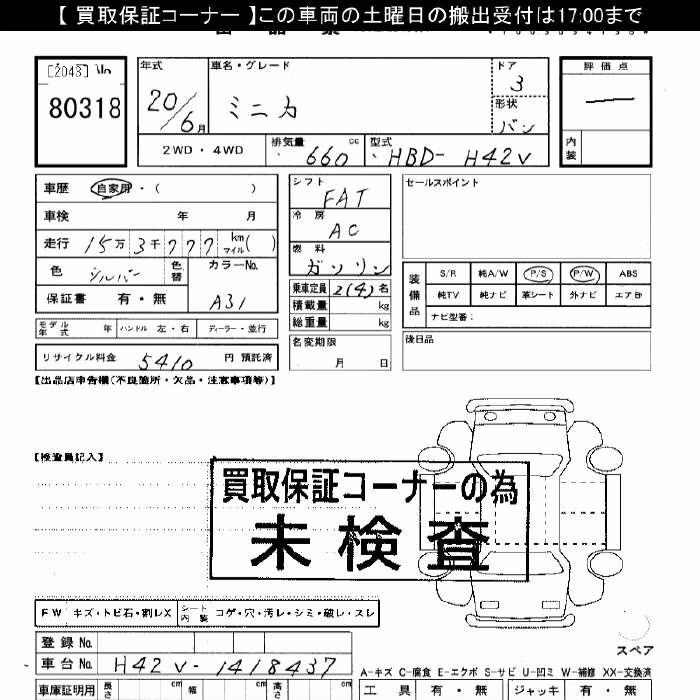 【 買取保証コーナー 】この車両の土曜日の搬出受付は17:00まで
［2043］ No
80318
年式 車名・グレード ドア 評価点
20/6月 ミニカ 3
形状 バン
内装
2WD・4WD 排気量 660 cc 型式 HBD- H42V
車歴 自家用・（ ）
車検 年 月
走行 15万3千777 km マイル（ ）
色 シルバー 色替 カラーNo.
保証書 有・無 A31
モデル年式 年 ハンドル 左・右 ディーラー・並行
リサイクル料金 5410 円 預託済
シフト FAT
冷房 AC
燃料 ガソリン
乗車定員 2(4) 名
積載量 kg
総重量 kg
名変期限
月 日
セールスポイント
装備品 S/R 純A/W P/S P/W ABS
純TV 純ナビ 革シート 外ナビ エアB
ナビ型番：
後日品
【出品店申告欄（不良箇所・欠品・注意事項等）】
【検査員記入】
買取保証コーナーの為
未検査
FW キズ・トビ石・割レX シート内装 コゲ・穴・汚レ・シミ・破レ・スレ
登録 No.
車台No. H42V-1418437
車庫証明用 長さ cm 幅 cm 高さ cm
スペア
A-キズ C-腐食 E-エクボ S-サビ U-凹ミ W-補修 XX-交換済
工具 有・無 ジャッキ 有・無